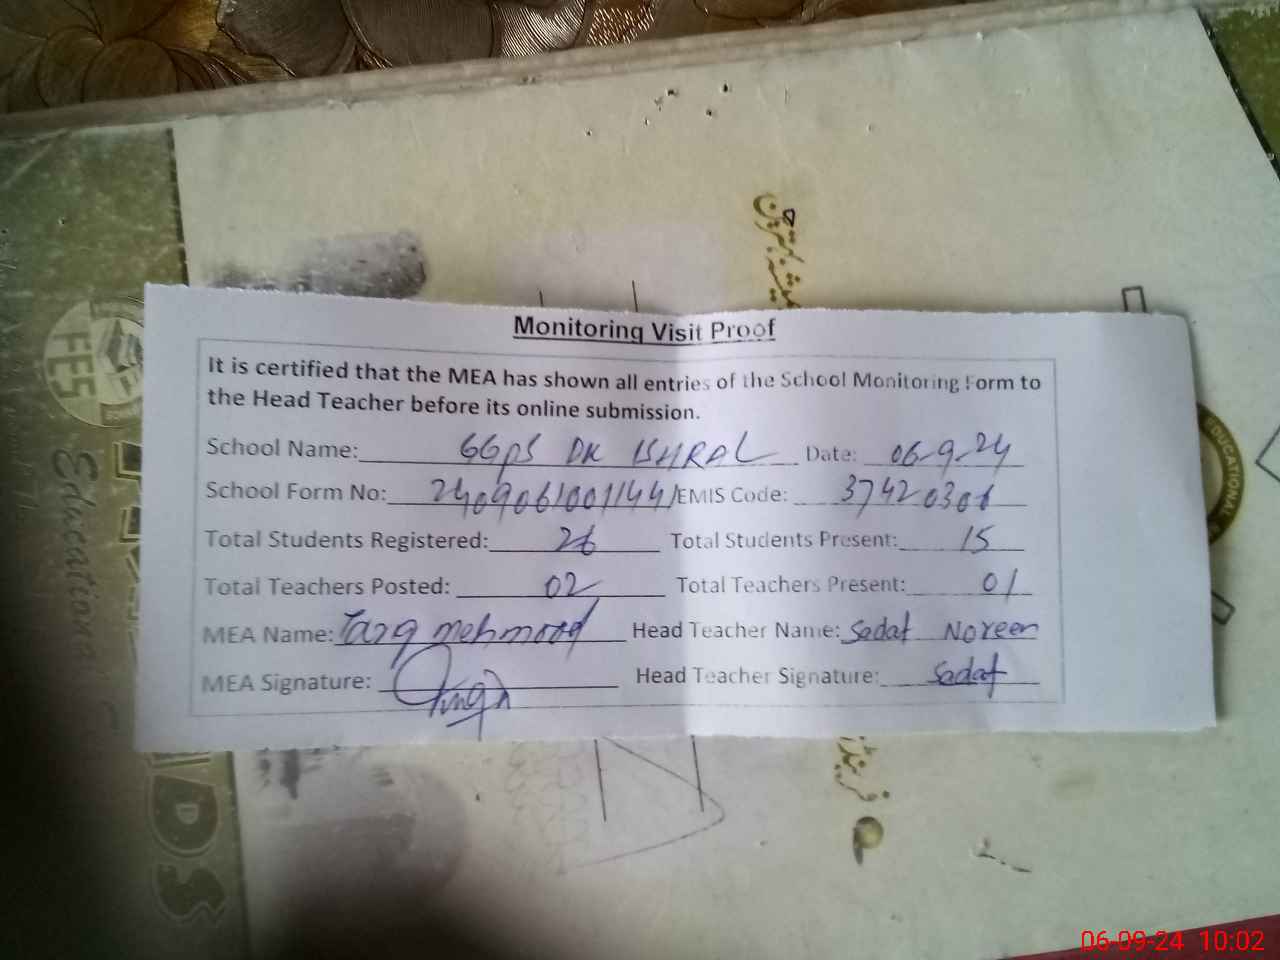 Monitoring Visit Proof
It is certified that the MEA has shown all entries of the School Monitoring Form to
the Head Teacher before its online submission.
School Name: GGPS DK ISHRAL Date: 06-9-24
School Form No: 2409061001144/ EMIS Code: 37420306
Total Students Registered: 26 Total Students Present: 15
Total Teachers Posted: 02 Total Teachers Present: 01
MEA Name: Tarq mehmood Head Teacher Name: Sadaf Noreen
MEA Signature: Head Teacher Signature: Sadaf
FES
Educational
EDUCATIONAL
06-09-24 10:02